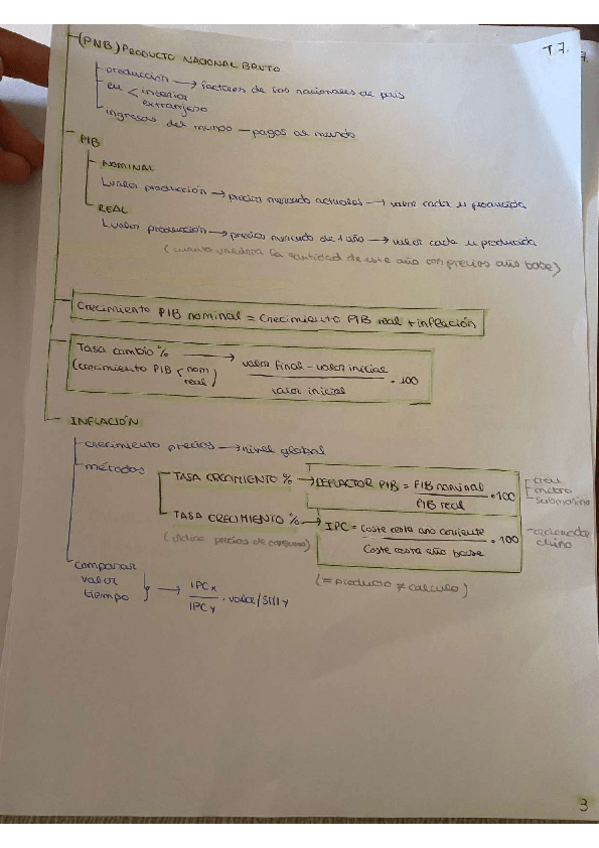 (PNB) PRODUCTO NACIONAL BRUTO
T.7.
7.
producción → factores de los nacionales de país
en < interior
extranjero
ingresos del mundo - pagos al mundo
PIB
NOMINAL
valor producción → precios mercado actuales → valor cada u producida
REAL
valor producción → precios mercado de 1 año → valor cada u producida
(cuanto valdría la cantidad de este año con precios año base)
Crecimiento PIB nominal = Crecimiento PIB real + inflación
Tasa cambio % → valor final - valor inicial / valor inicial · 100
(crecimiento PIB < nom
real)
INFLACIÓN
crecimiento precios → nivel global
métodos
TASA CRECIMIENTO % → DEFLACTOR PIB = PIB nominal / PIB real · 100
metro
submarino
TASA CRECIMIENTO % → IPC = Coste cesta año corriente / Coste cesta año base · 100
(utiliza precios de consumo)
chino
comparar
valor
tiempo
→ IPCx / IPCy · valor/
(= producto ≠ calculo)
3